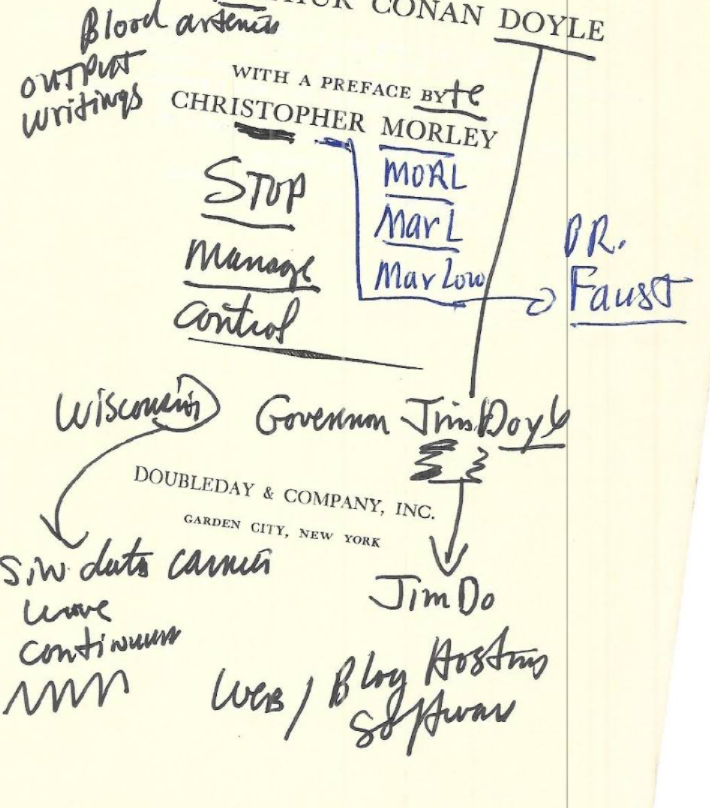 THUR CONAN DOYLE
Blood arteries
OUTPUT
writings
WITH A PREFACE BYte
CHRISTOPHER MORLEY
STOP
Manage
Control
MORL
MarL
Marlow
DR.
Faust
Wisconsin Governor Jim Doyle
DOUBLEDAY & COMPANY, INC.
GARDEN CITY, NEW YORK
data carrier
wave
continuum
Jim Do
Web / Blog Hosting
Software